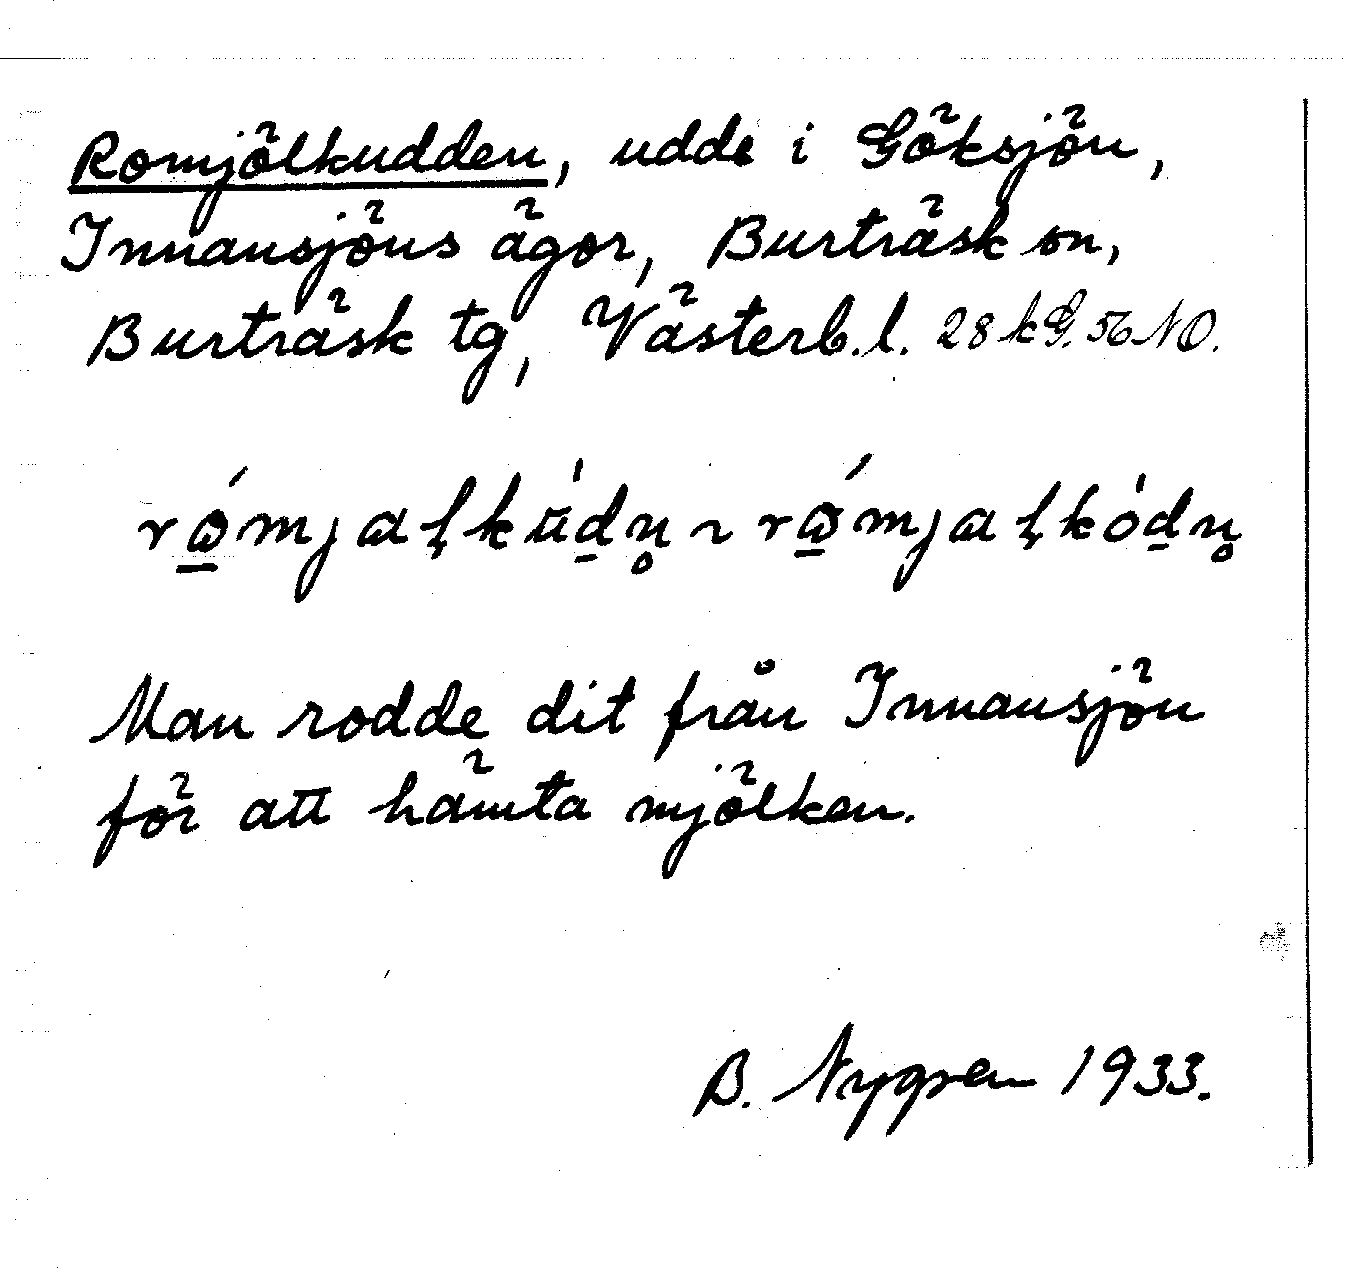 Romjölkudden, udde i Göksjön,
Innansjöns ägor, Burträsk sn,
Burträsk tg, Västerb. l. 28 kG. 56 NO.
Man rodde dit från Innansjön
för att hämta mjölken.
B. Nygren 1933.